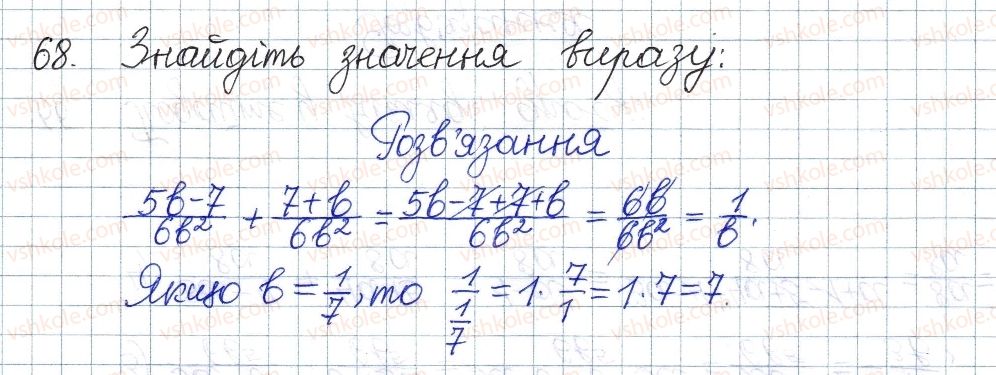 68. Знайдіть значення виразу:
Розв'язання
5b-7/6b² + 7+b/6b² = 5b-7+7+b/6b² = 6b/6b² = 1/b.
Якщо b = 1/7, то 1/(1/7) = 1·7/1 = 1·7 = 7.
vshkole.com